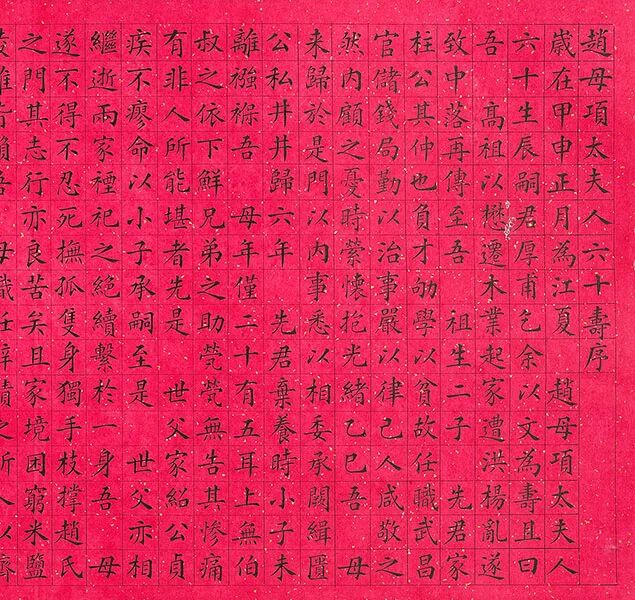 趙母項太夫人六十壽序
歲在甲申正月為江夏 趙母項太夫人
六十生辰嗣君厚甫乞余以文為壽且曰
吾 高祖以懋遷木業起家遭洪楊亂遂
致中落再傳至吾 祖生二子 先君家
柱公其仲也負才劬學以貧故任職武昌
官儲錢局勤以治事嚴以律己人咸敬之
然內顧之憂時縈懷抱光緒乙巳吾 母
来歸於是門以內事悉以相委承闕緝匱
公私井井歸六年 先君棄養時小子未
離襁褓吾 母年僅二十有五耳上無伯
叔之依下鮮兄弟之助煢煢無告其慘痛
有非人所能堪者先是 世父家紹公貞
疾不瘳命以小子承嗣至是 世父亦相
繼逝兩家禋祀之絕續繫於一身吾 母
遂不得不忍死撫孤隻身獨手枝撐趙氏
之門其志行亦良苦矣且家境困窮米鹽